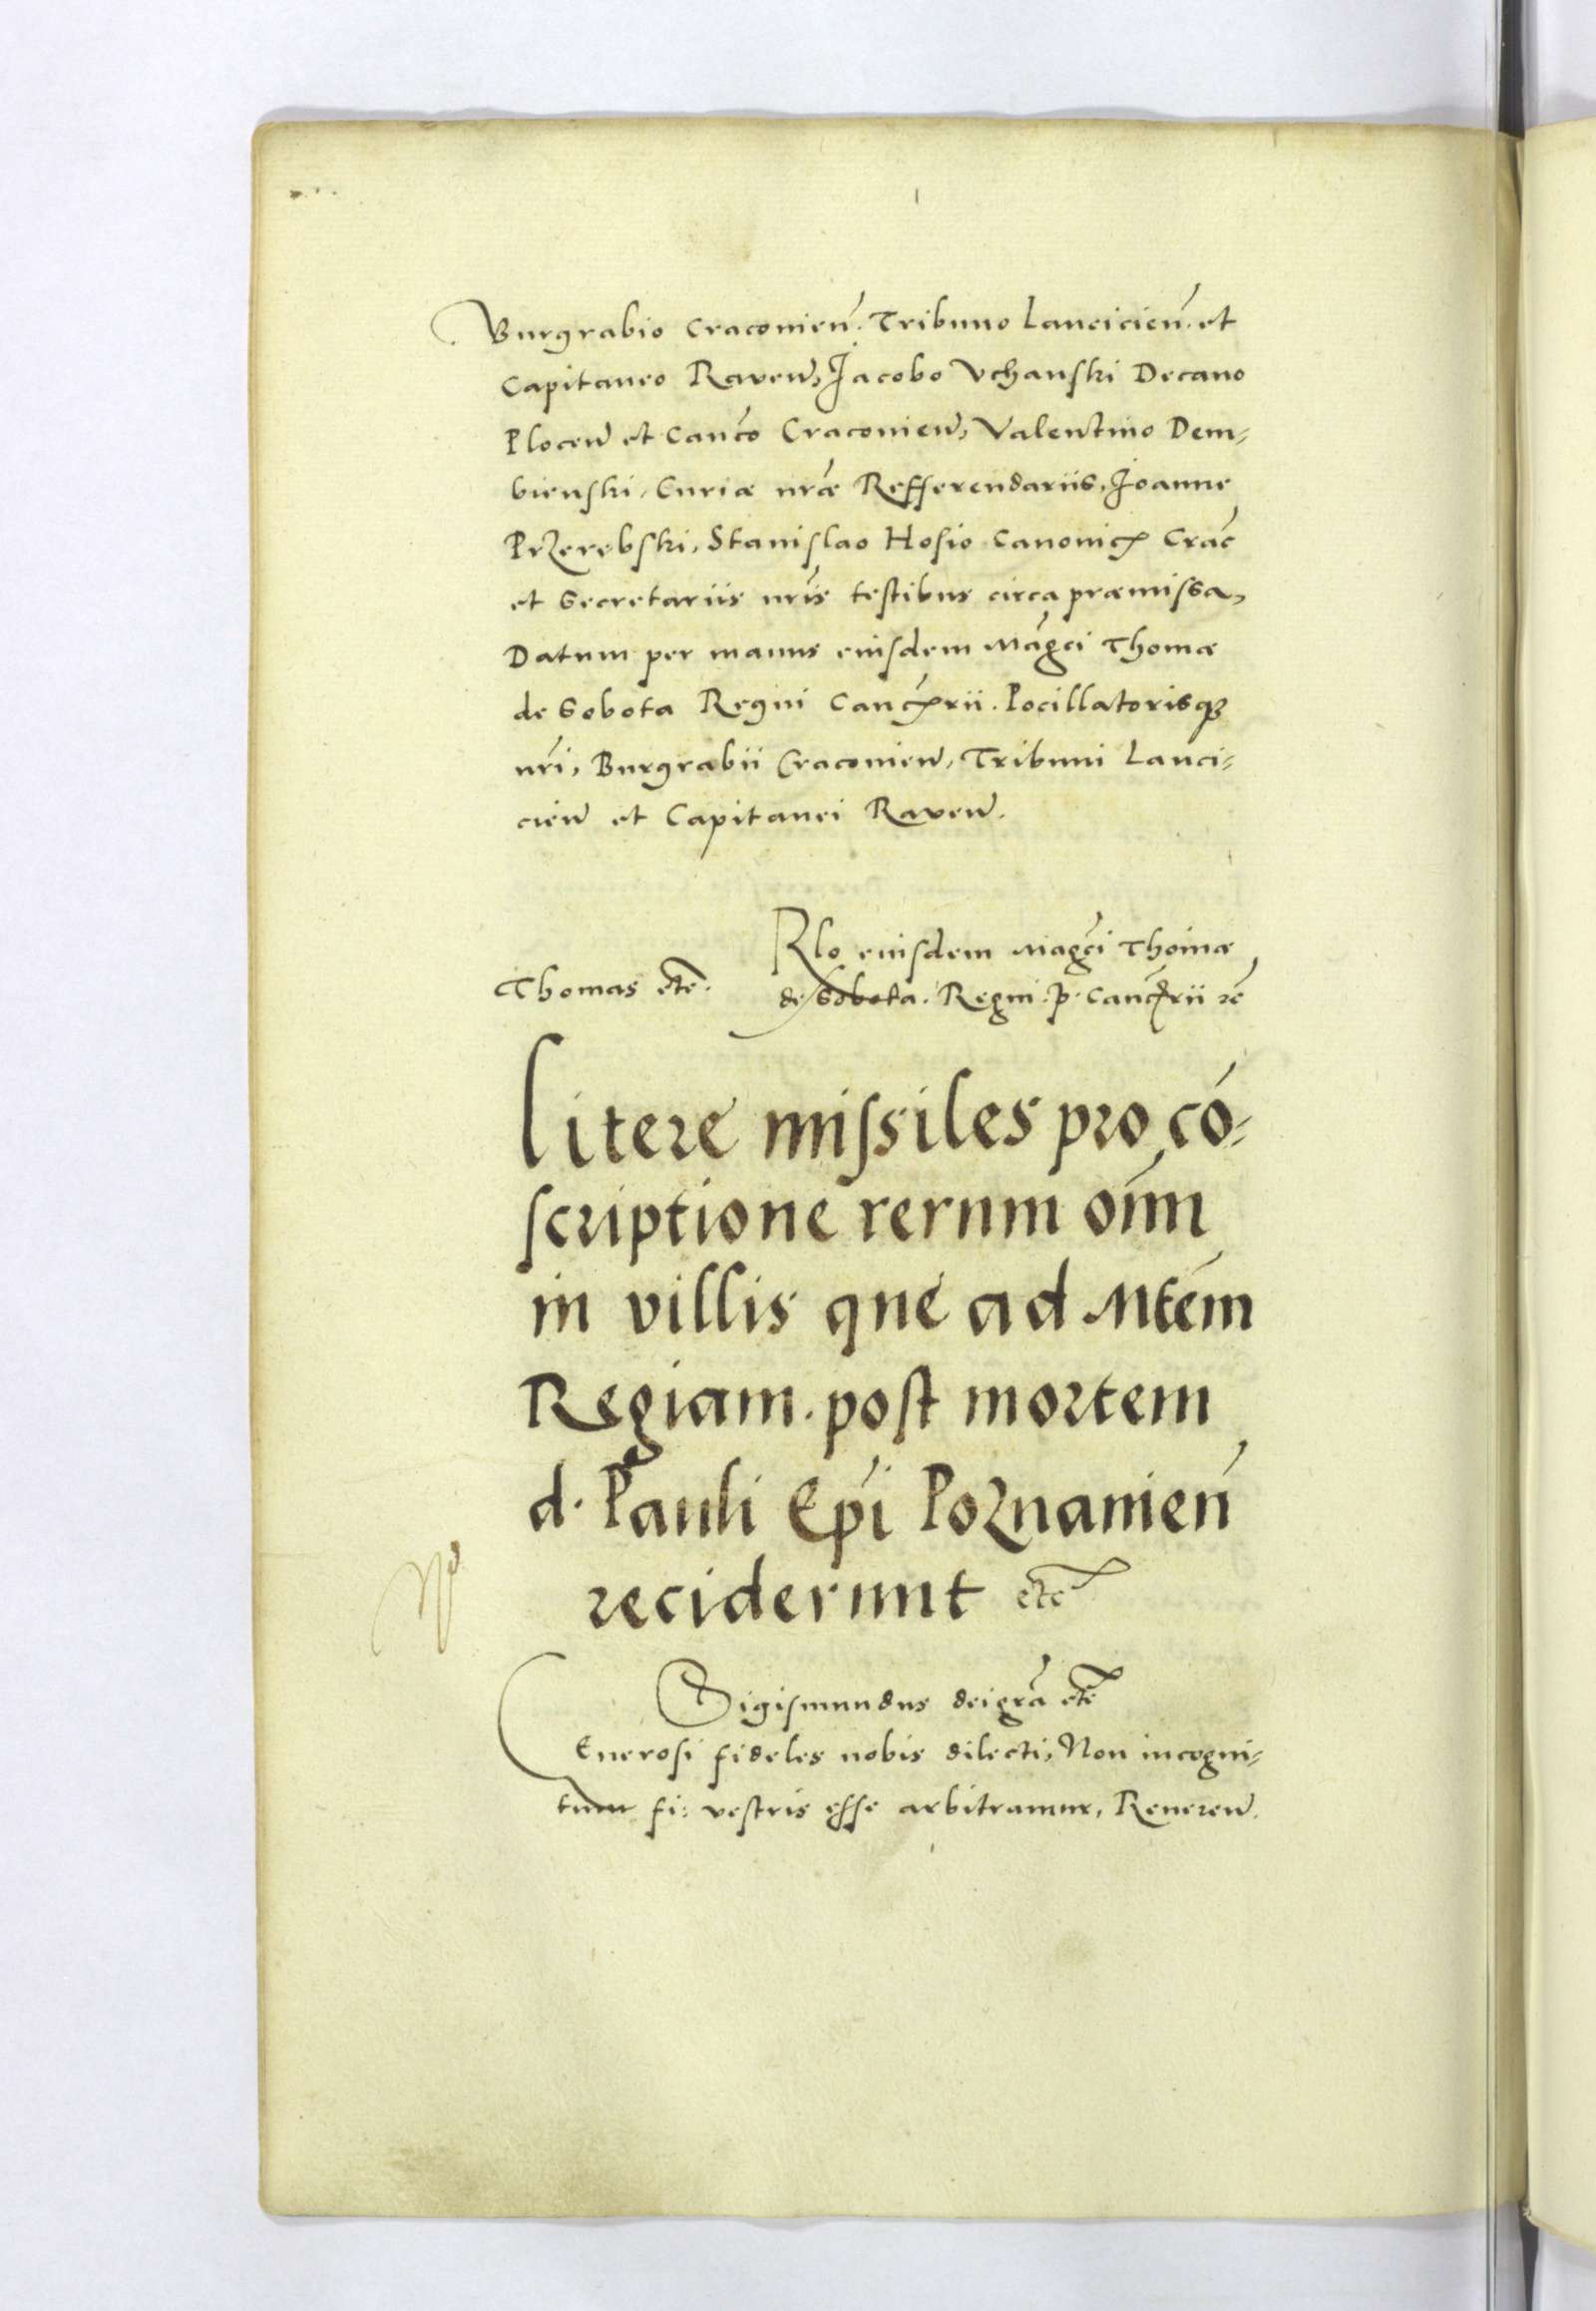 Burgrabio Craconień. Tribuno Lancicień. et
Capitaneo Raveń, Jacobo Vchanski Decano
Ploceń et Canco Craconień, Valentino Dem-
bienski, Curiæ nræ Refferendariis, Joanne
Przerebski, Stanislao Hosio Canonicꝭ Crac
et Secretariis nris testibus circa præmissa,
Datum per manus eiusdem Magci Thomæ
de Sobota Regni Cancꝭrii. Pocillatorisqꝫ
nri, Burgrabii Craconień, Tribuni Lanci-
cień et Capitanei Raveń.
Thomas etc.
Rlo eiusdem Magci Thomæ
de Sobota. Regni. p. Cancꝭrii rē
Litere missiles pro có-
scriptione rerum oīm
in villis que ad Mtēm
Regiam. post mortem
d. Pauli Epi Poznanień
reciderunt etc
Sigismundus dei gra etc
Generosi fideles nobis dilecti, Non incogni-
tum fi: vestris esse arbitramur, Reuereń.